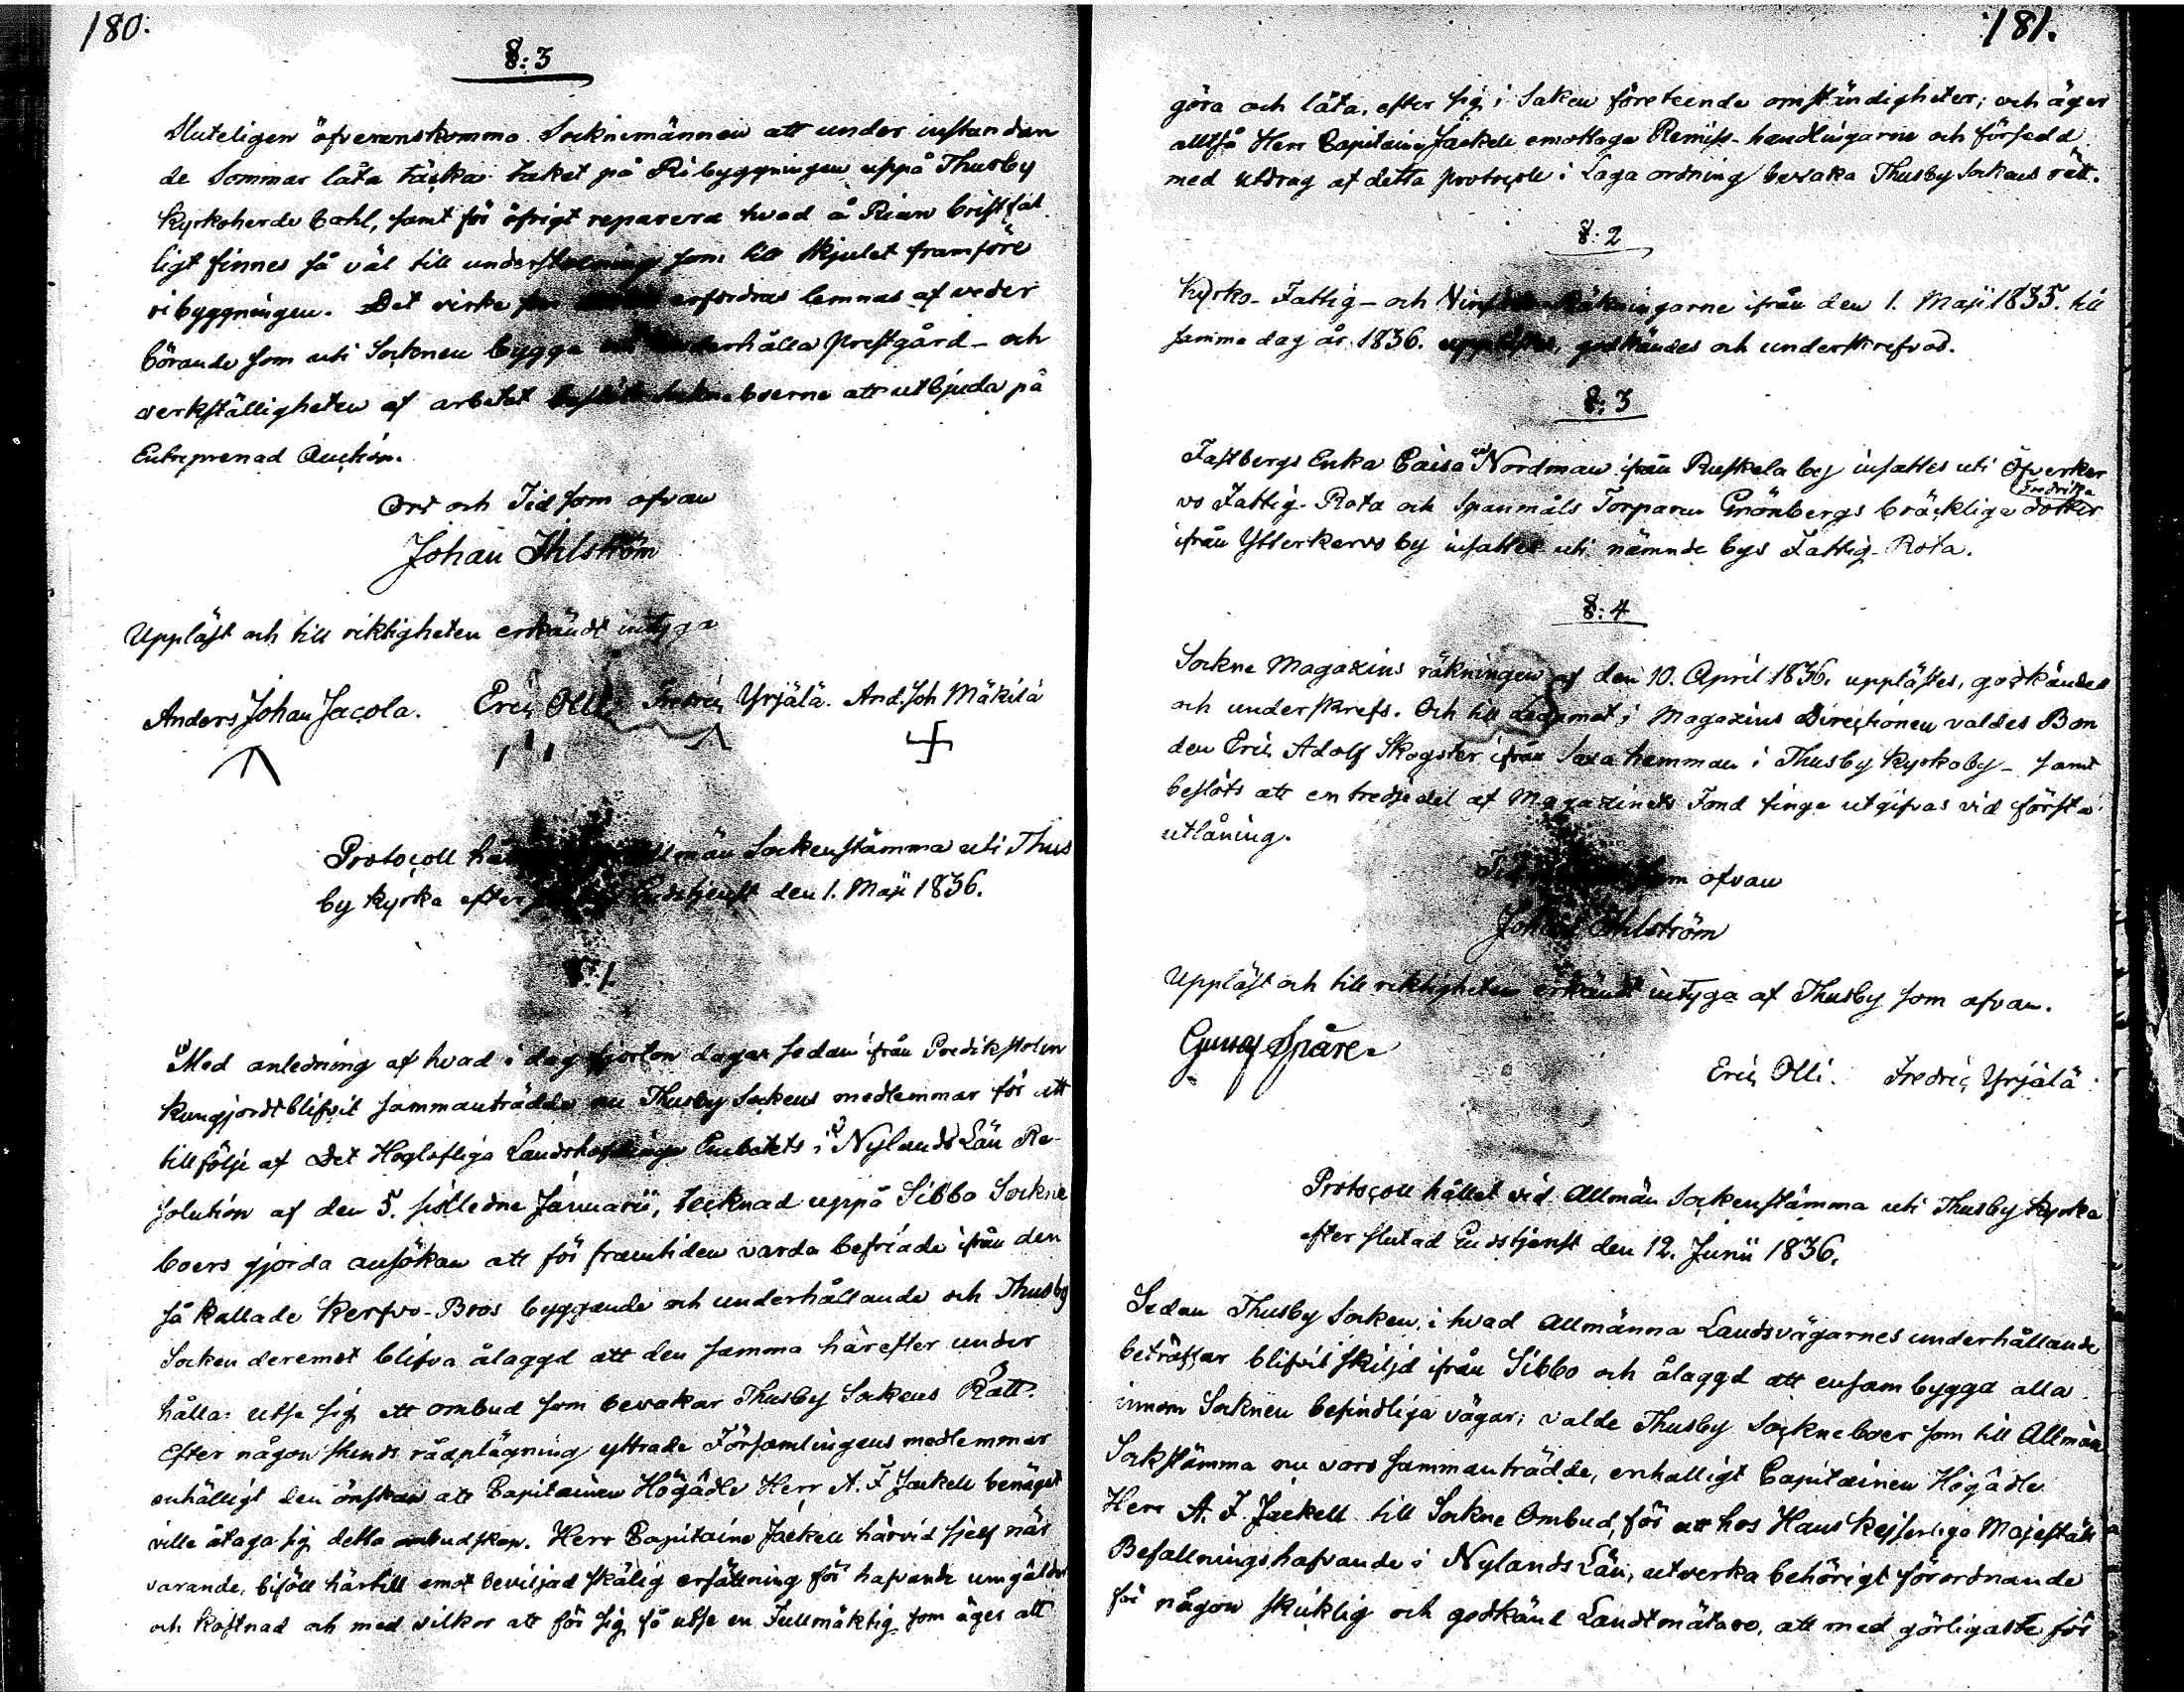 180.
§: 3
Sluteligen öfverenskommo Socknemännen att under instundan
de Sommar låta täcka taket på Ri byggningen uppå Thusby
Kyrkoherde Bohl, samt för öfrigt reparera hvad å Rian bristfäl
ligt finnes så väl till som till skjulet framföre
ri byggningen. Det virke erfordras lemnas af veder
börande som uti Socknen bygga underhålla Prestgård - och
verkställigheten af arbetet Sockneboerne att utbjuda på
Entreprenad Auction.
Ort och Tid som ofvan
Johan Ihlström
Uppläst och till riktigheten erkändt intyga
Anders Johan Jacola. Eric Olli Fredric Yrjälä. And. Joh Mäkilä
Protocoll hållet Allmän Sockenstämma uti Thus
by kyrka efter Gudstjenst den 1. Maji 1836.
§: 1.
Med anledning af hvad i dag fjorton dagar sedan ifrån Predikstolen
kungjordt blifvit sammanträdde nu Thusby Sockens medlemmar för att
till följe af Det Höglofliga Landshöfdinge Embetets i Nylands Län Re-
solution af den 5. sistledne Januarii, tecknad uppå Sibbo Sockne
boers gjorda ansökan att för framtiden varda befriade ifrån den
så kallade Kerfvo-Bros byggande och underhållande och Thusby
Socken deremot blifva ålaggd att den samma härefter under
hålla: utse sig ett ombud som bevakar Thusby Sockens Rätt.
Efter någon stunds rådplägning yttrade Församlingens medlemmar
enhälligt den önskan att Capitainen Högädle Herr A. F. Jackell benäget
ville åtaga sig detta ombudskap. Herr Capitaine Jackell härvid sjelf när
varande, biföll härtill emot beviljad skälig ersättning för hafvande umgälder
och kostnad och med vilkor att för sig få utse en Fullmäktig som äger att
181.
göra och låta, efter sig i Saken företeende omständigheter; och äger
alltså Herr Capitaine Jackell emottaga Remiss-handlingarne och försedd
med utdrag af detta protocoll i Laga ordning bevaka Thusby Sockens rätt.
§: 2
Kyrko- Fattig- och Räkningarne ifrån den 1. Maji 1835. till
samma dag år 1836. upplästes, godkändes och underskrefvos.
§: 3
Fastbergs Enka Caisa Nordman ifrån Ruskela by insattes uti Öfverker
vo Fattig-Rota och Spanmåls Torparen Grönbergs bräckliga dotter Fredrika
ifrån Ytterkervo by insattes uti nämnde bys Fattig-Rota.
§: 4
Sockne Magazins räkningen af den 10. April 1836. upplästes, godkändes
och underskrefs. Och till ledamot i Magazins Directionen valdes Bon
den Eric Adolf Skogster ifrån Saxa hemman i Thusby Kyrkoby - samt
beslöts att en tredjedel af Magazinets Fond finge utgifvas vid första
utlåning.
som ofvan
Johan Ihlström
Uppläst och till riktigheten erkändt intyga af Thusby som ofvan.
Gustaf Spåre
Eric Olli. Fredric Yrjälä
Protocoll hållet vid Allmän Sockenstämma uti Thusby Kyrka
efter slutad Gudstjenst den 12. Junii 1836.
Sedan Thusby Socken, i hvad Allmänna Landsvägarnes underhållande
beträffar blifvit skiljd ifrån Sibbo och ålaggd att ensam bygga alla
innom Socknen befindliga vägar; valde Thusby Sockneboer som till Allmän
Sockstämma nu voro sammanträdde, enhälligt Capitainen Högädle
Herr A. F. Jackell till Sockne Ombud, för att hos Hans Kejserliga Majestäts
Befallningshafvande i Nylands Län, utverka behörigt förordnande
för någon skicklig och godkänd Landtmätare, att med görligaste för